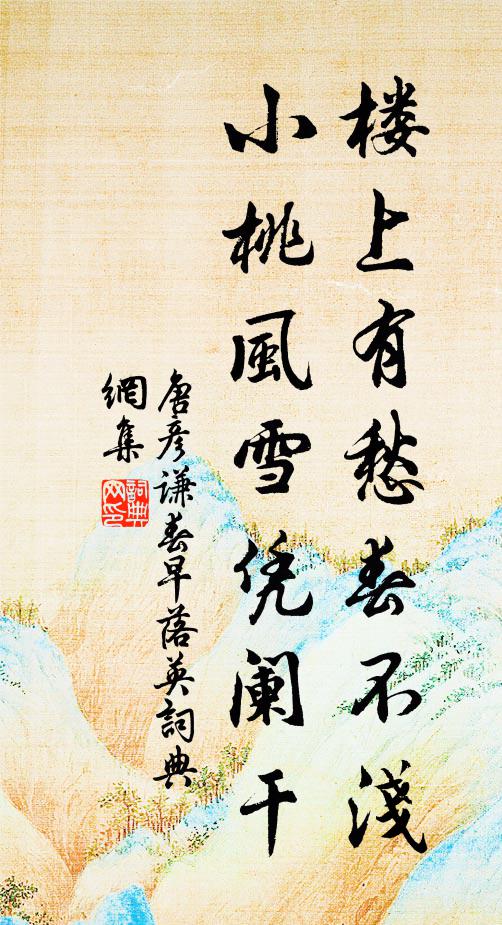 楼上有愁春不淺
小桃風雪凭阑干
唐彦谦春早落英詞典
網集
詞典
网印